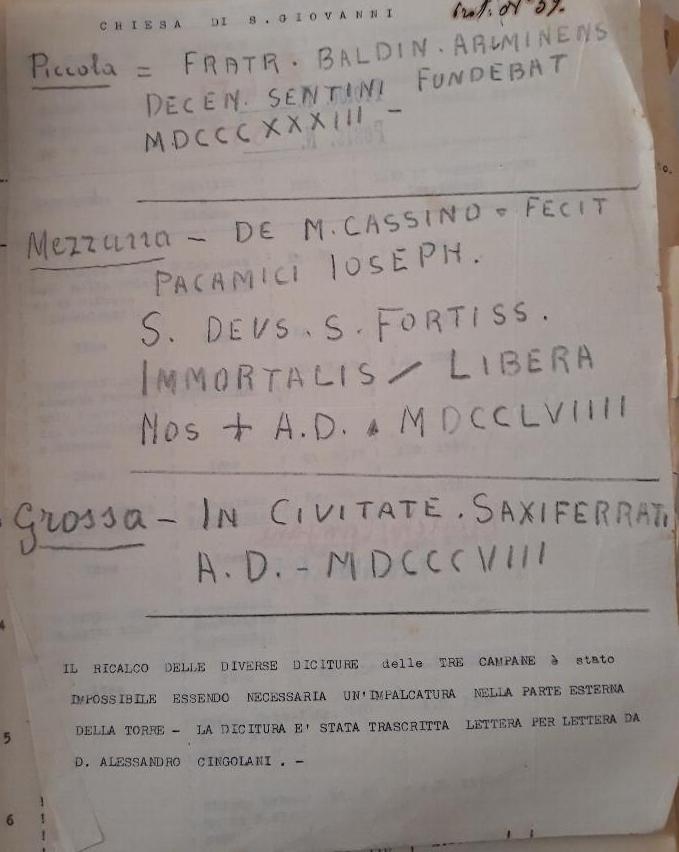 CHIESA DI S. GIOVANNI
Piccola = FRATR. BALDIN. ARIMINENS
DECEN. SENTINI FUNDEBAT
MDCCCXXXIII -
Mezzana - DE M. CASSINO • FECIT
PACAMICI IOSEPH.
S. DEUS. S. FORTISS.
IMMORTALIS / LIBERA
NOS + A.D. • MDCCLVIIII
Grossa - IN CIVITATE. SAXIFERRATI
A.D. - MDCCCVIII
IL RICALCO DELLE DIVERSE DICITURE delle TRE CAMPANE è stato
IMPOSSIBILE ESSENDO NECESSARIA UN'IMPALCATURA NELLA PARTE ESTERNA
DELLA TORRE - LA DICITURA E' STATA TRASCRITTA LETTERA PER LETTERA DA
D. ALESSANDRO CINGOLANI . -
5
6